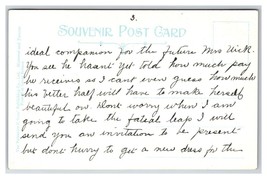 3.
SOUVENIR POST CARD
ideal companion for the future Mrs Dick.
You see he hasnt yet told how much pay
he receives so I cant even guess how much
his better half will have to make herself
beautiful on. Dont worry when I am
going to take the fateal leap I will
send you an invitation to be present
but dont hurry to get a new dress for the